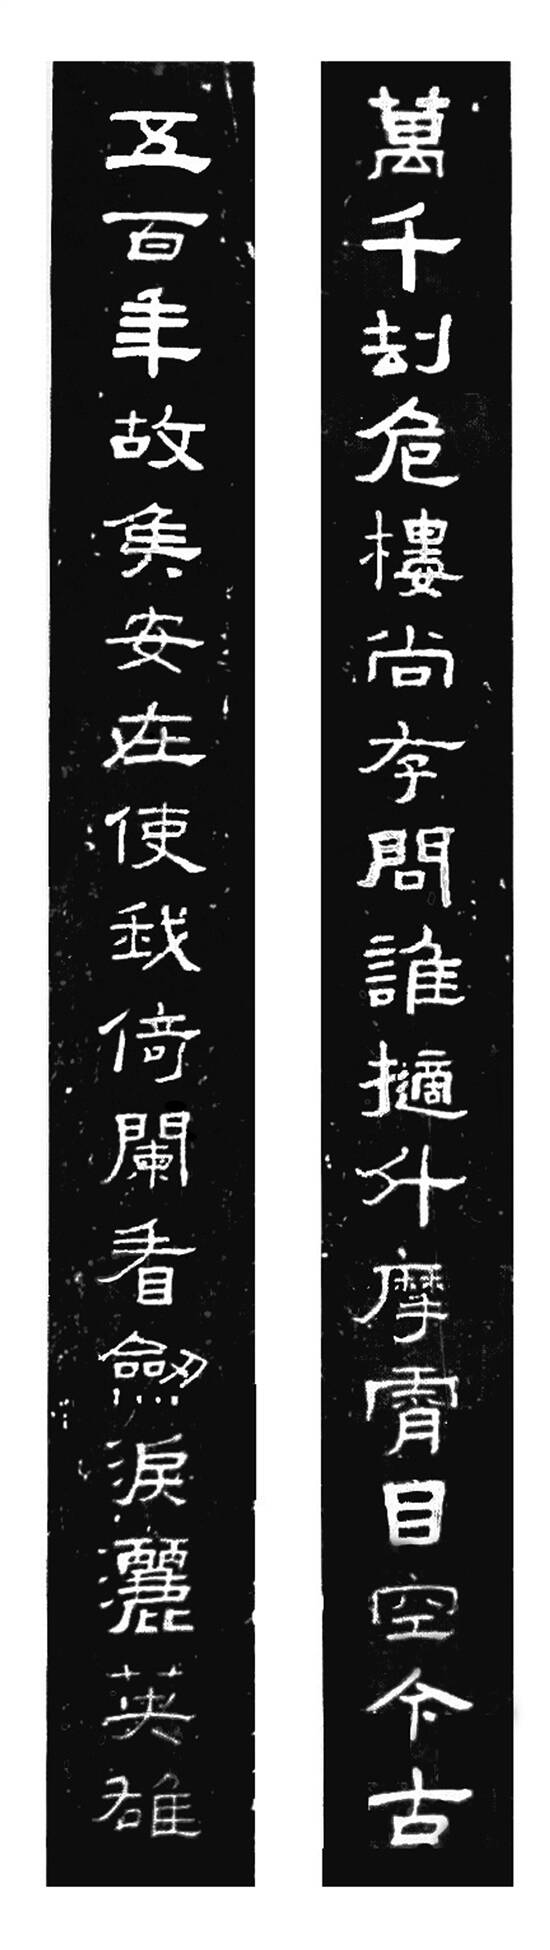 萬千劫危樓尚存問誰擿斗摩霄目空今古
五百年故矦安在使我倚闌看劒淚灑英雄